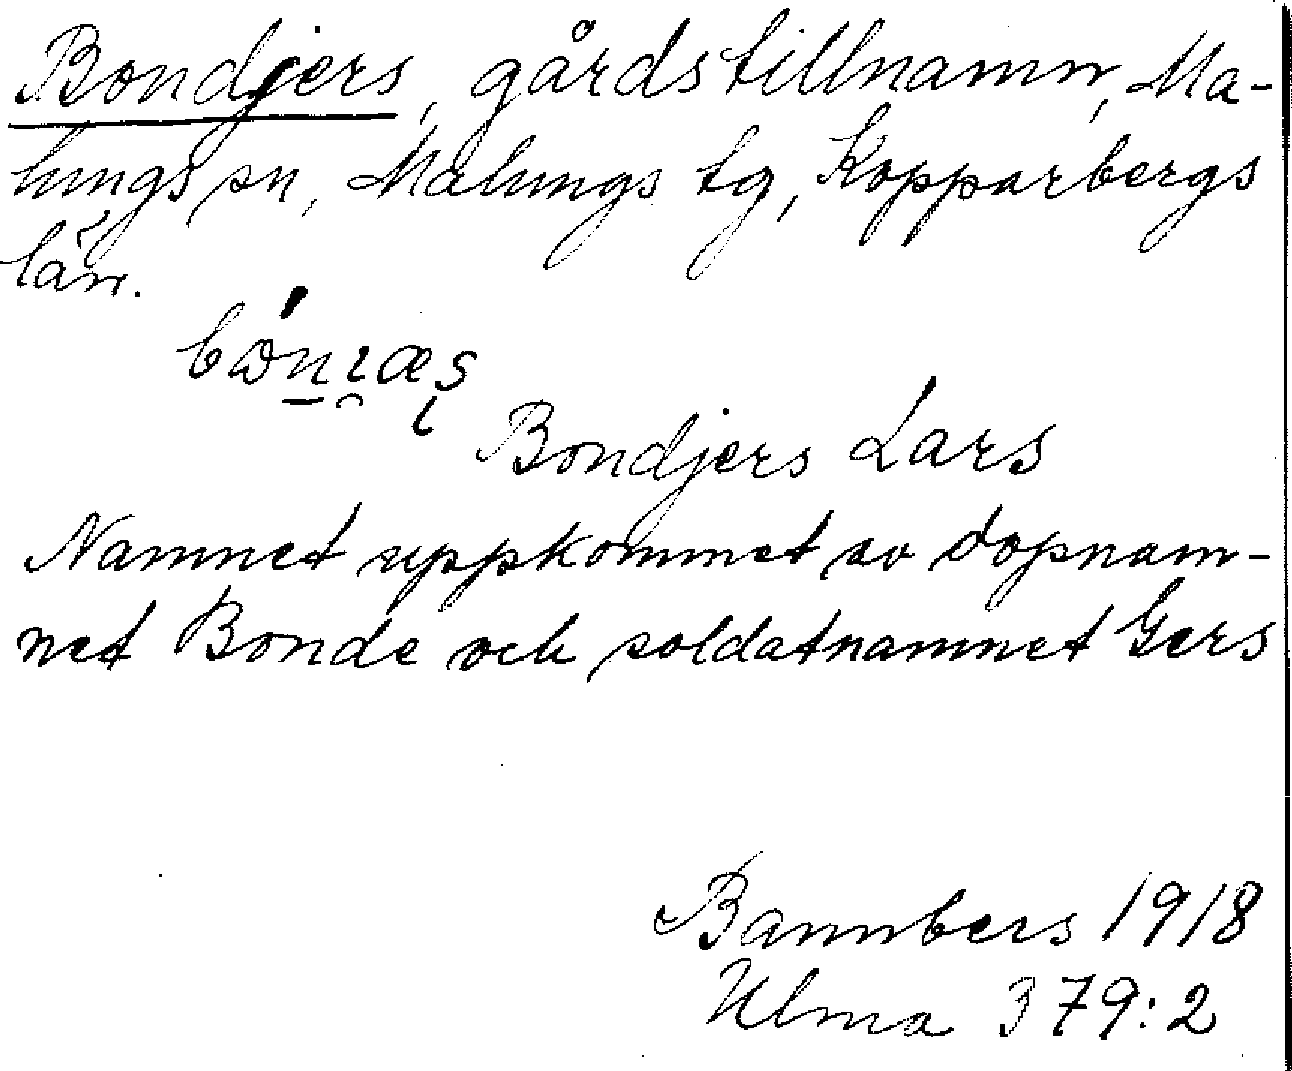 Bondjers, gårdstillnamn, Ma-
lungs sn, Malungs tg, Kopparbergs
län.
Bondjers Lars
Namnet uppkommet av dopnam-
net Bonde och soldatnamnet Gers
Bannbers 1918
Ulma 379:2